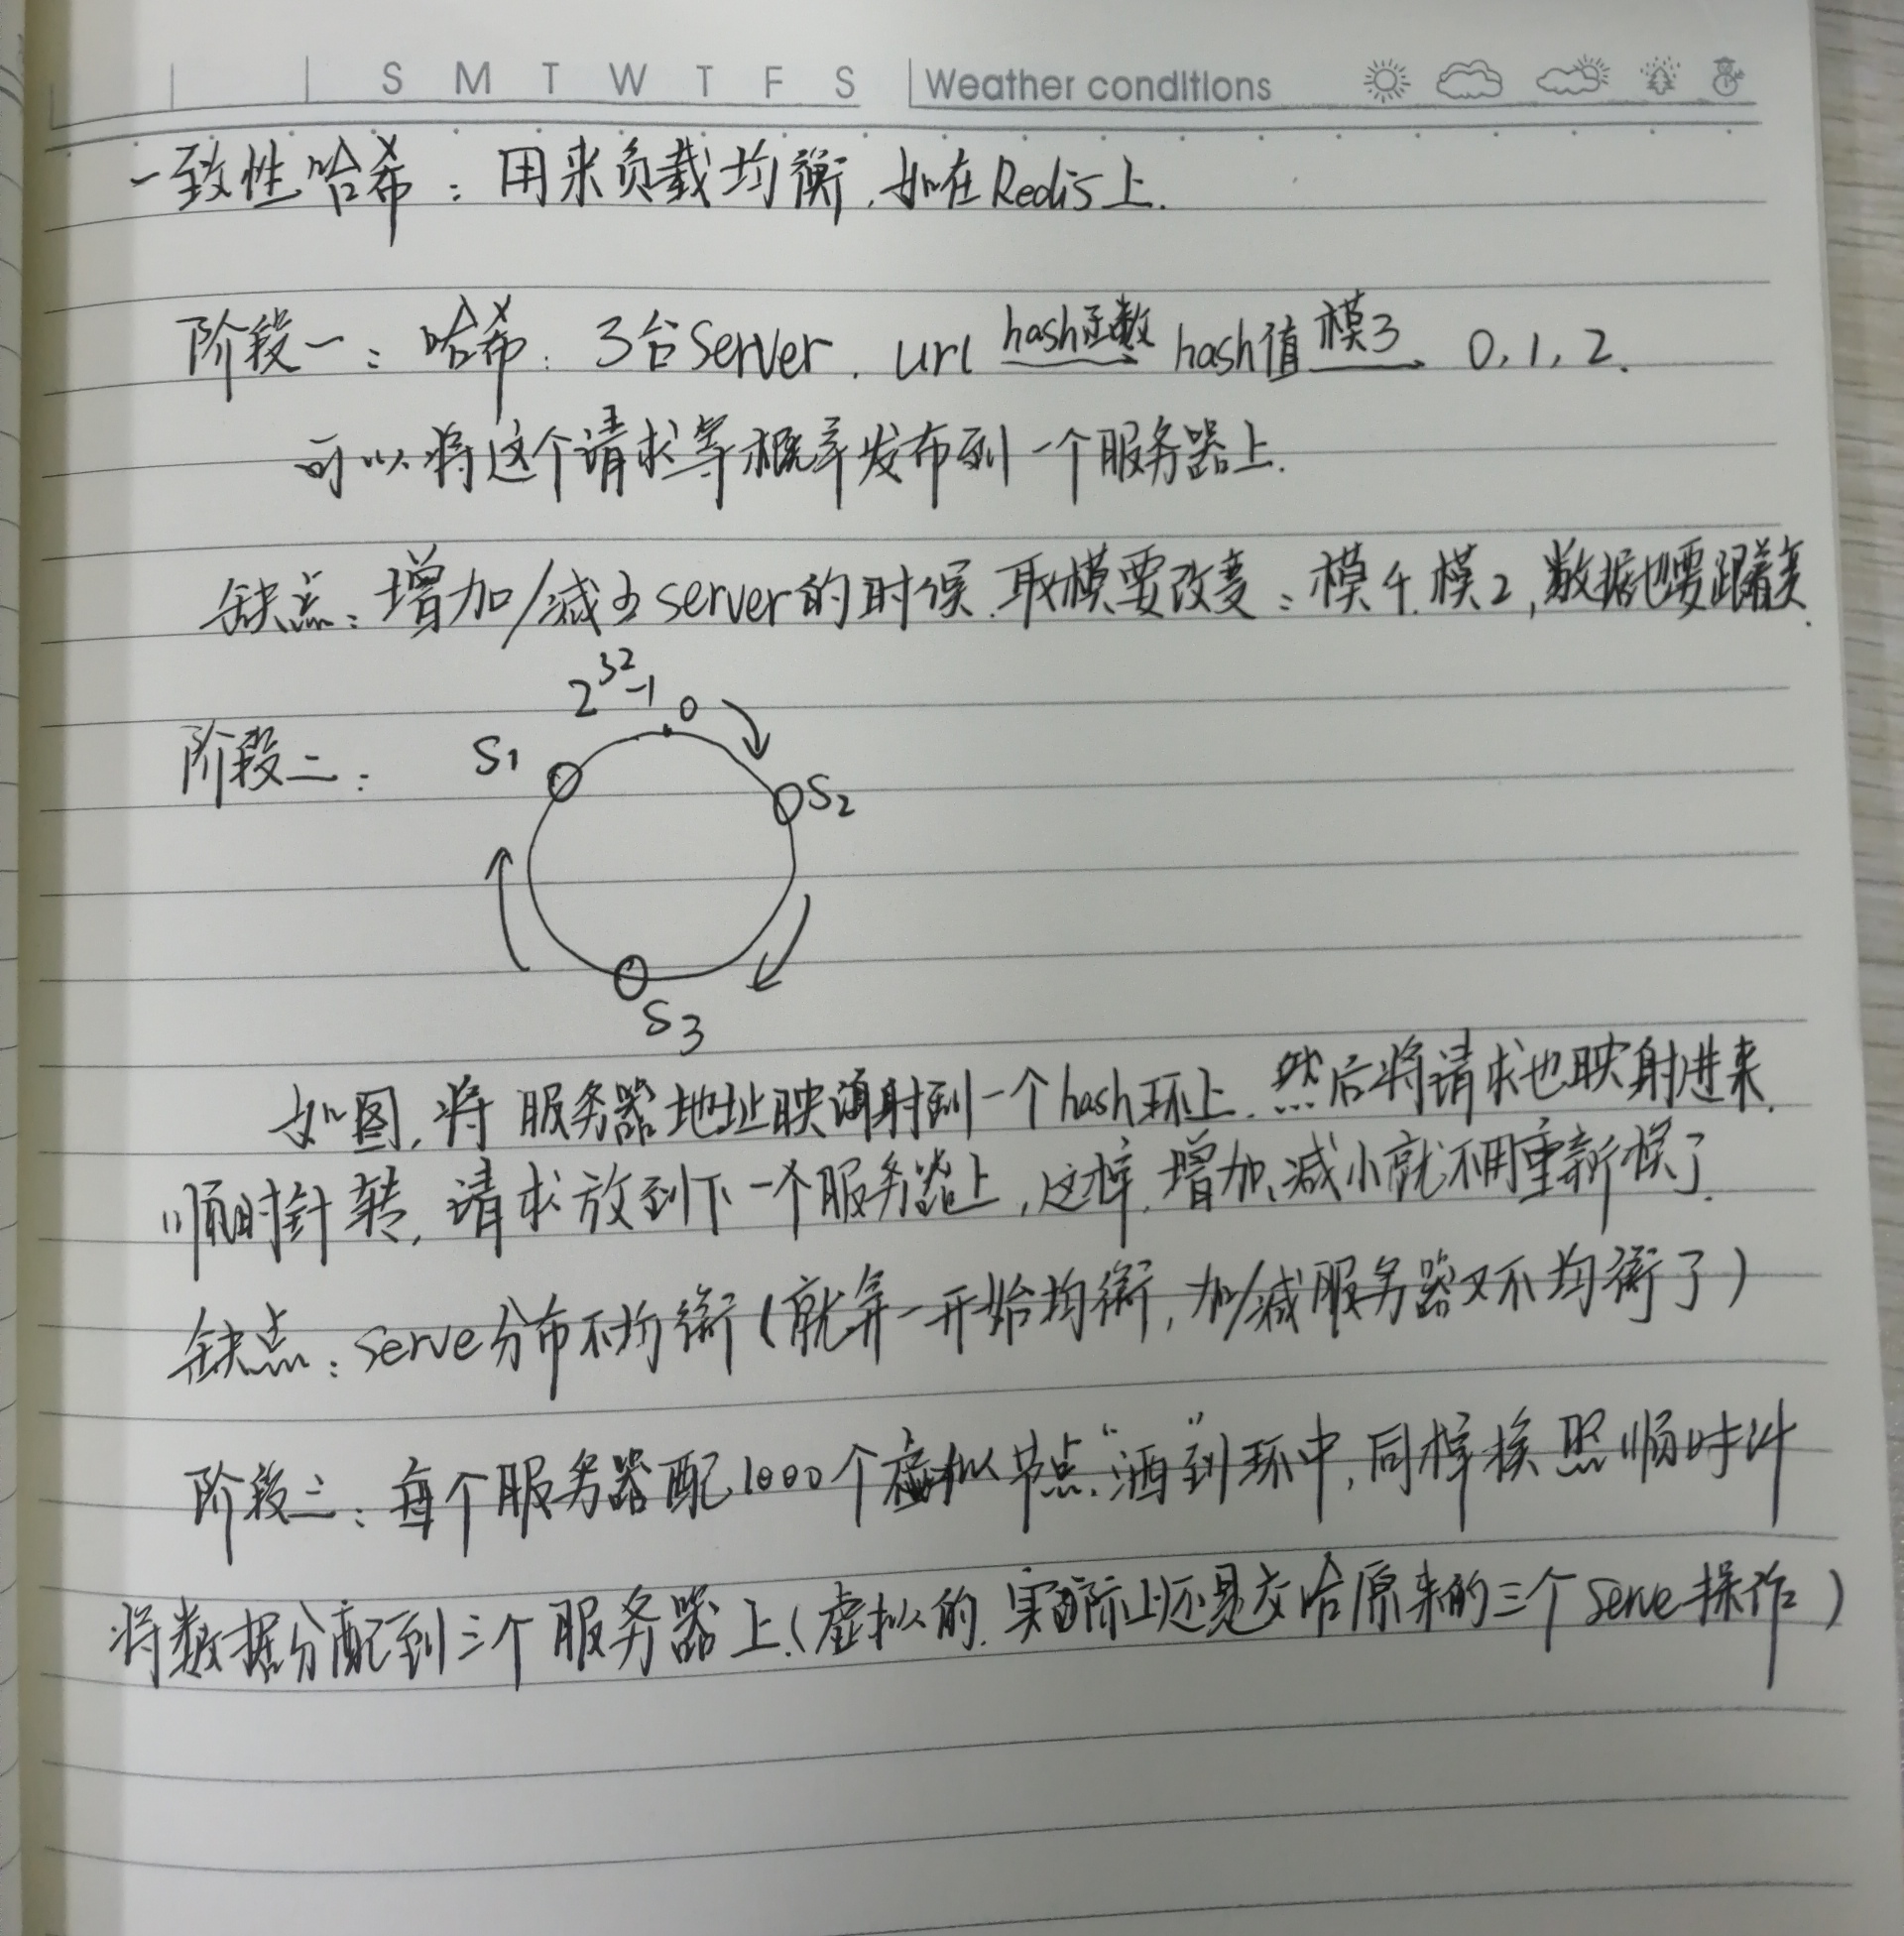 S M T W T F S Weather conditions
一致性哈希：用来负载均衡，如在Redis上.
阶段一：哈希：3台Server. url hash函数 hash值 模3 0,1,2.
可以将这个请求等概率发布到一个服务器上.
缺点：增加/减少server的时候.取模要改变：模4.模2,数据也要跟着变.
2^32-1 0
阶段二：
S1
S2
S3
如图,将服务器地址映射到一个hash环上.然后将请求也映射进来.
顺时针转,请求放到下一个服务器上,这样,增加、减小就不用重新模了.
缺点：serve分布不均衡(就算一开始均衡,加/减服务器又不均衡了)
阶段三：每个服务器配1000个虚拟节点.“洒”到环中,同样挨照顺时针
将数据分配到三个服务器上.(虚拟的.实际上还是交给原来的三个serve操作)